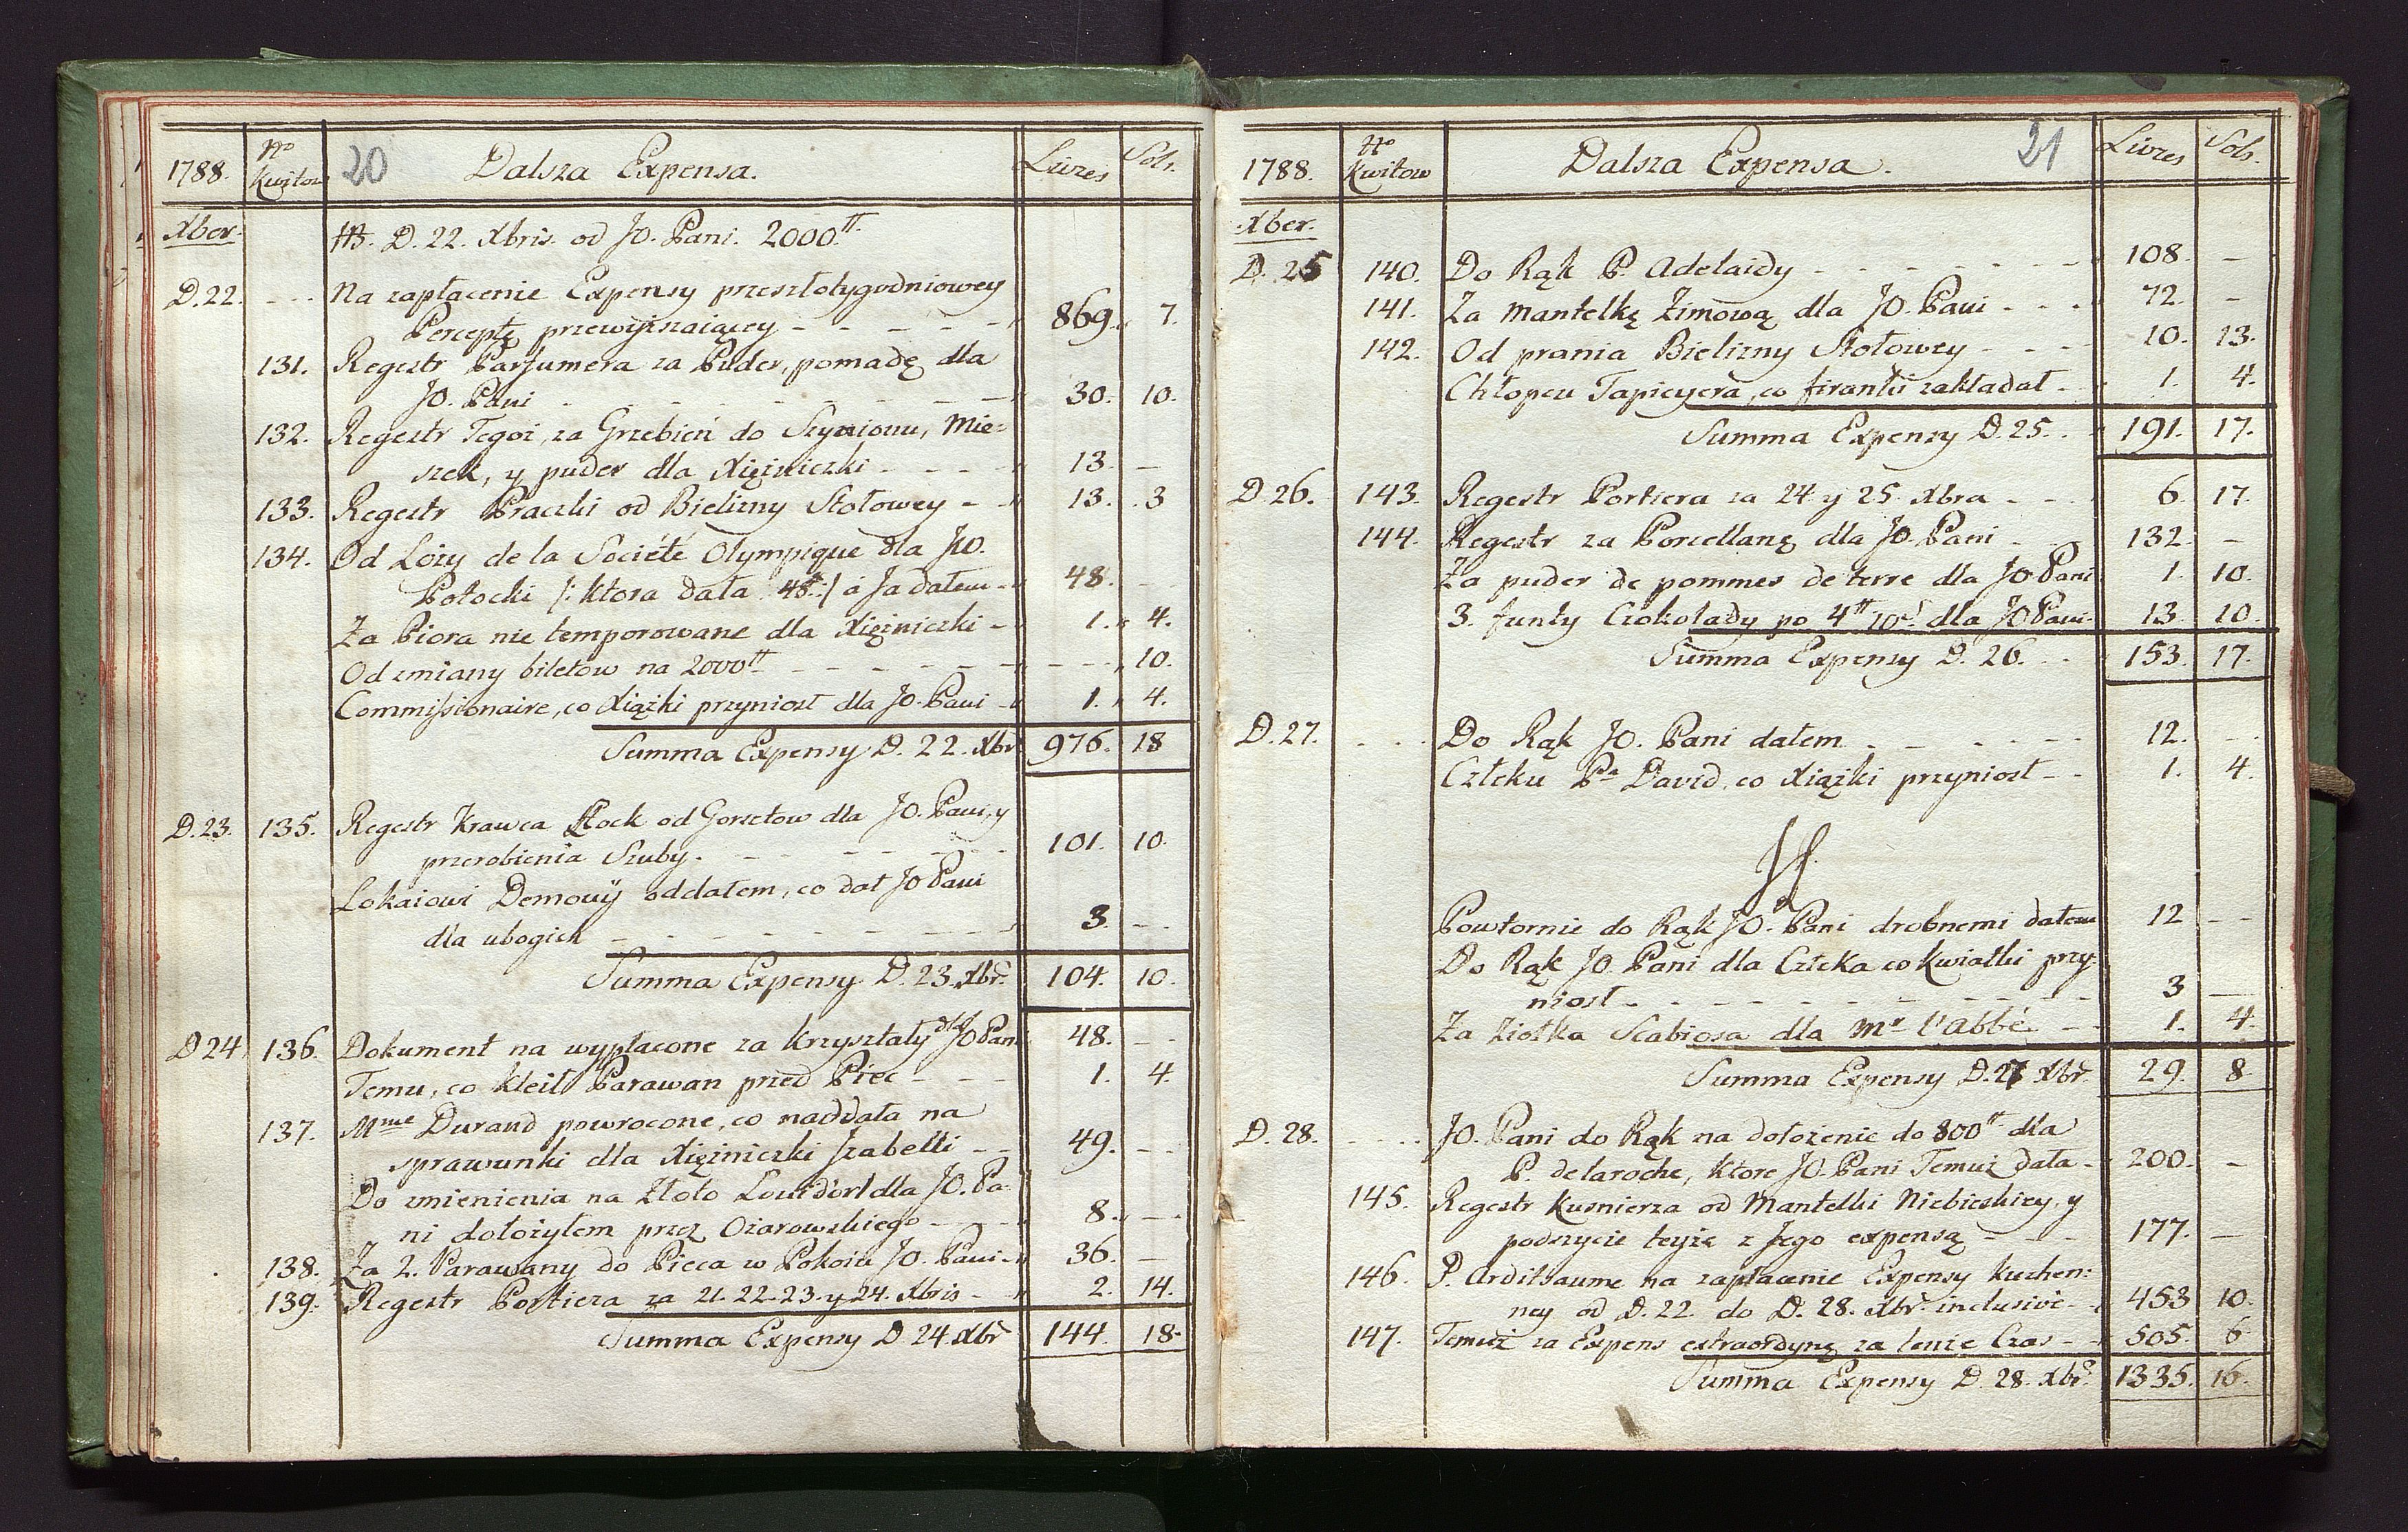 1788. No Kwitow 20 Dalsza Expensa. Livres Sols.
Xber. NB. D. 22. Xbris od JO. Pani. 2000.tt
D. 22. - - - Na zapłacenie Expensy przeszłotygodniowey
Perceptę przewyższaiącey - - - - - 869. 7.
131. Regestr Parfumera za Puder, pomadę dla
JO. Pani - - - - - - - - 30. 10.
132. Regestr Tegoż, za Grzebień do Szynionu, Mie=
szek, y puder dla Xiężniczki - - - - 13. -
133. Regestr Praczki od Bielizny Stołowey - - 13. 3
134. Od Loży de la Societé Olympique dla JW.
Potocki /: ktora dała 48.tt :/ a ja dałem - 48. -
Za Piora nie temporowane dla Xiężniczki - 1. 4.
Od zmiany biletow na 2000tt - - - - - - - - - 10.
Commissionaire, co Xiążki przyniosł dla JO. Pani - 1. 4.
Summa Expensy D. 22. Xbr 976. 18
D. 23. 135. Regestr Krawca Stock od Gorsetow dla JO. Pani, y
przerobienia Szuby. - - - - - - 101. 10.
Lokaiowi Demowy oddałem, co dał JO Pani
dla ubogich - - - - - - - - 3. - -
Summa Expensy D. 23. Xbr. 104. 10.
D 24 136. Dokument na wypłacone za Krzyształy dla JO Pani 48. - -
Temu, co kleił Parawan przed Piec - - - 1. 4.
137. Mme Durand powrocone, co naddała na
sprawunki dla Xiężniczki Izabelli - - 49. - -
Do zmienienia na Złoto Louid'orl dla JO. Pa-
ni dołożyłem przez Ożarowskiego - - - 8. - -
138. Za 2. Parawany do Pieca w Pokoiu JO. Pani - 36. -
139. Regestr Portiera za 21. 22. 23. y 24. Xbris - - 2. 14.
Summa Expensy D 24. Xbr 144. 18.
1788. No Kwitow Dalsza Expensa. 21 Livres Sols.
Xber.
D. 25 140. Do Rąk P. Adelaidy - - - - - - 108. -
141. Za Mantelkę Zimową dla JO. Pani - - - 72. -
142. Od prania Bielizny Stołowey - - - 10. 13.
Chłopcu Tapicyera, co firanki zakładał - 1. 4.
Summa Expensy D. 25. . 191. 17.
D. 26. 143. Regestr Portiera za 24 y 25. Xbra - - 6. 17.
144. Regestr za Porcellanę dla JO. Pani - 132. -
Za puder de pommes de terre dla JO Pani 1. 10.
3. funty Czokolady po 4tt 10s. dla JO Pani - 13. 10.
Summa Expensy D. 26. . . 153. 17.
D. 27. - - - Do Rąk JO. Pani dałem - - - - - 12. - -
Człeku Pa David, co Xiążki przyniosł - - 1. 4.
Powtornie do Rąk JO. Pani drobnemi dałem 12 - -
Do Rąk JO. Pani dla Człeka co kwiatki przy-
niosł - - - - - - - - - 3 -
Za Ziołka Scabiosa dla Mr l'Abbé - - 1. 4.
Summa Expensy D. 27 Xbr. 29. 8.
D. 28. - - - - JO. Pani do Rąk na dołożenie do 800tt dla
P. delaroche, ktore JO. Pani Temuż dała - 200. -
145. Regestr Kusnierza od Mantelki Niebieskiey, y
podszycie teyże z Jego expensą - - - 177. -
146. P. Ardilbaume na zapłacenie Expensy kuchen:
ney od D. 22. do D. 28. Xbr. inclusivè - 453 10.
147. Temuż za Expens extraordynę za tenże Czas - - 505. 6
Summa Expensy D. 28. Xbr. 1335. 16.